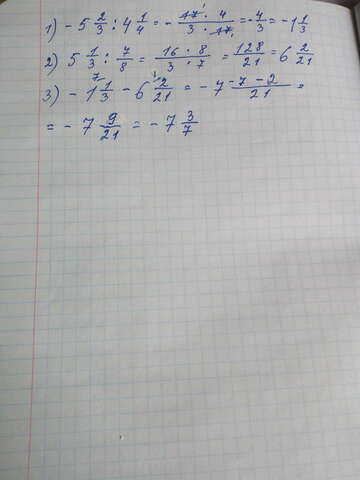 1) - 5 2/3 : 4 1/4 = - 17 · 4 / 3 · 17 = - 4/3 = - 1 1/3
2) 5 1/3 : 7/8 = 16 · 8 / 3 · 7 = 128/21 = 6 2/21
3) - 1 1/3 - 6 2/21 = - 7 -7 - 2 / 21 =
= - 7 9/21 = - 7 3/7